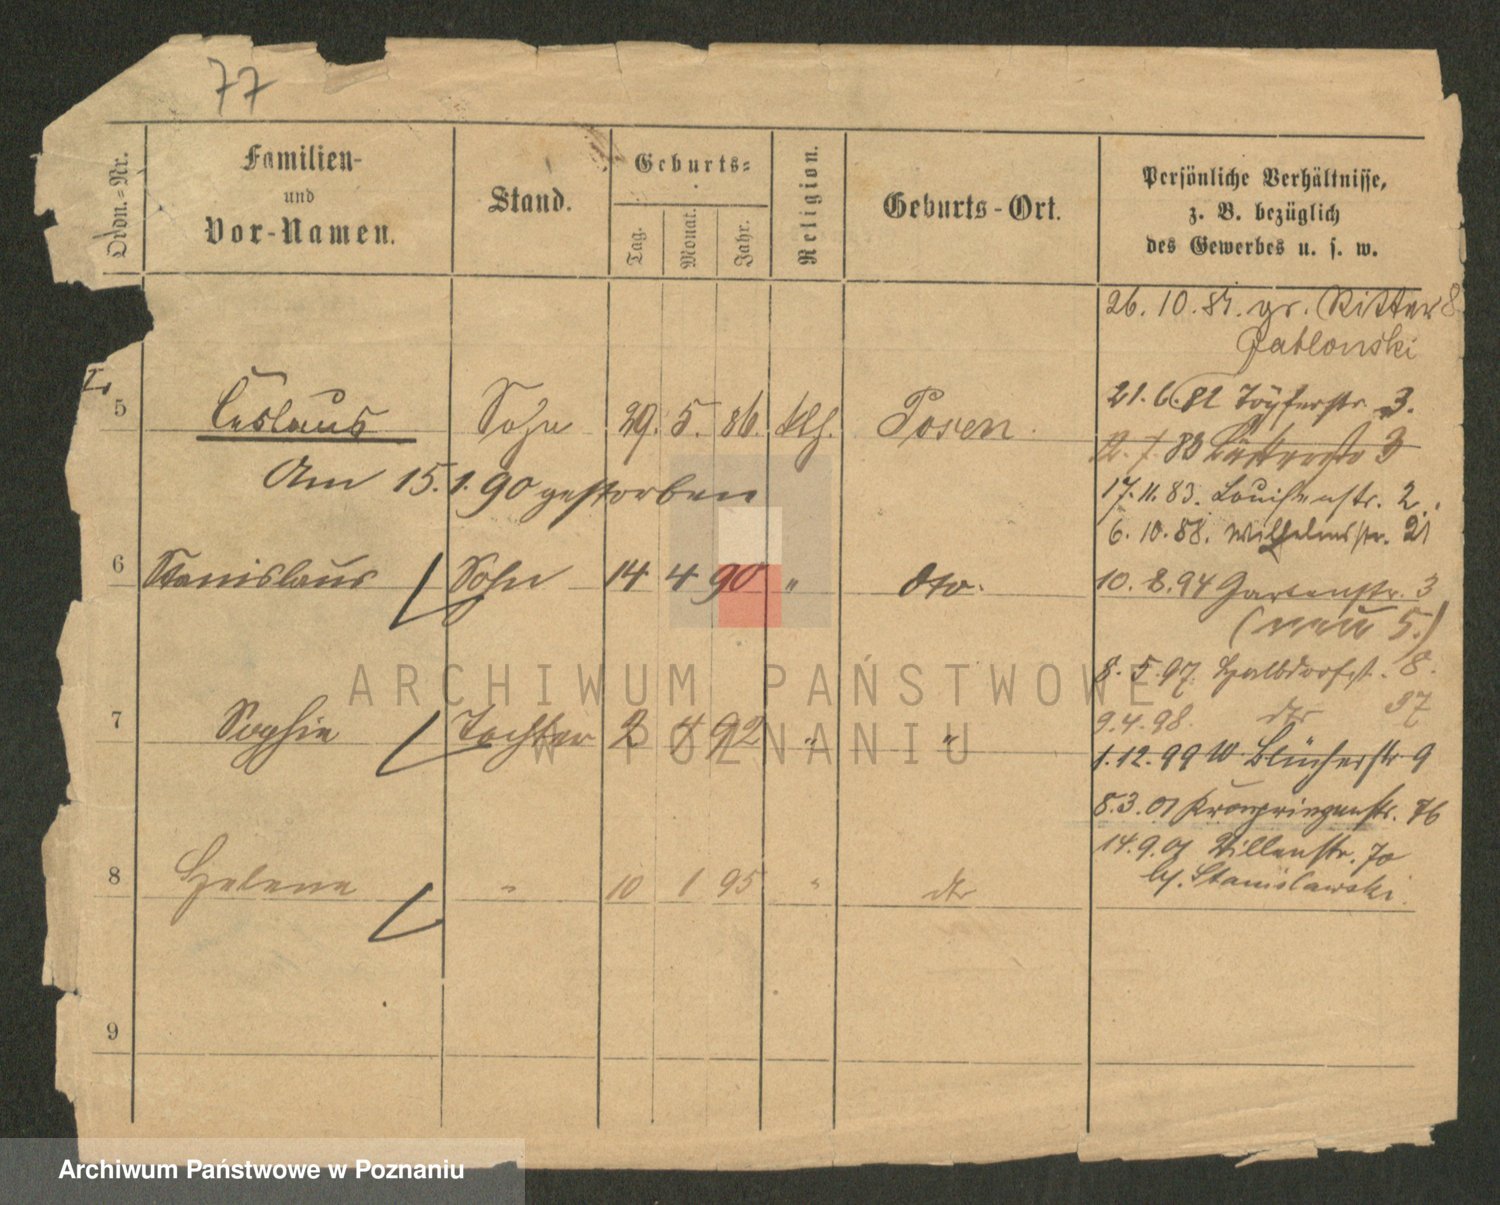 77
Ordn.-Nr.
Familien-
und
Vor-Namen.
Stand.
Geburts-
Tag.
Monat.
Jahr.
Religion.
Geburts-Ort.
Persönliche Verhältnisse,
z. B. bezüglich
des Gewerbes u. s. w.
26. 10. 81. gr. Ritter 8
Jablonski
21. 6. 82 Töpferstr. 3.
5 Ceslaus Sohn 29. 5. 86. kth. Posen
83 3
Am 15. 1. 90 gestorben
17. 11. 83. Louisenstr. 2.
6. 10. 88. Wilhelmstr. 21
6 Stanislaus Sohn 14 4 90 " dto.
10. 8. 94 Gartenstr. 3
(neu 5.)
8. 5. 97. Halbdorfst. 8.
9. 4. 98. dto 37
7 Sophie Tochter 2 4 92 " "
1. 12. 99 W. Blücherstr 9
8. 3. 01 Kronprinzenstr. 76
14. 9. 01 Villenstr. 70
8 Helene " 10 1 95 " dto
b/. Stanislawski.
9
ARCHIWUM PAŃSTWOWE
W POZNANIU
Archiwum Państwowe w Poznaniu